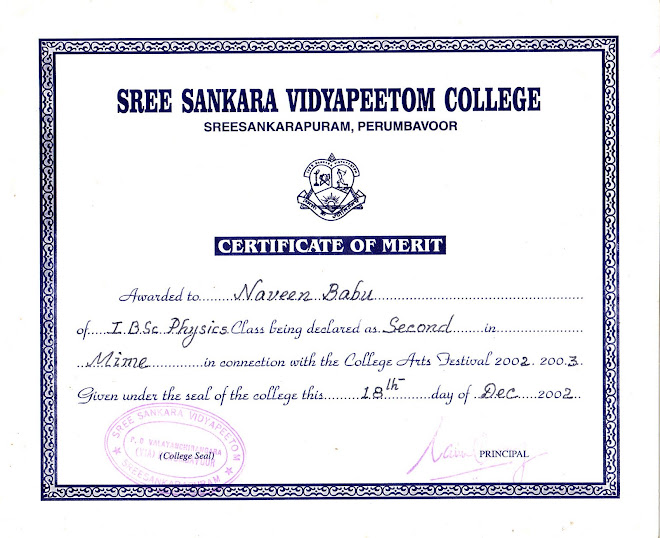 SREE SANKARA VIDYAPEETOM COLLEGE
SREESANKARAPURAM, PERUMBAVOOR
CERTIFICATE OF MERIT
Awarded to Naveen Babu
of I B.Sc Physics Class being declared as Second in
Mime in connection with the College Arts Festival 2002. 2003.
Given under the seal of the college this 18th day of Dec 2002.
SREE SANKARA VIDYAPEETOM
(College Seal)
SREESANKARAPURAM
PRINCIPAL